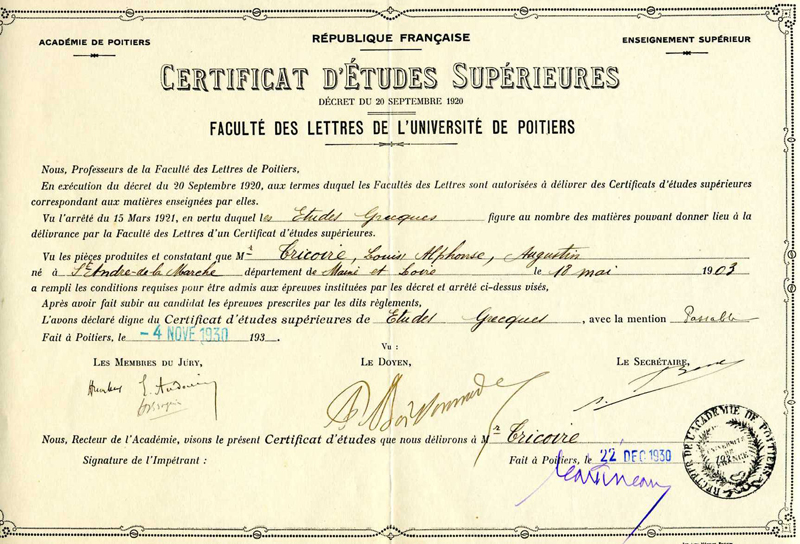 ACADÉMIE DE POITIERS
RÉPUBLIQUE FRANÇAISE
ENSEIGNEMENT SUPÉRIEUR
CERTIFICAT D'ÉTUDES SUPÉRIEURES
DÉCRET DU 20 SEPTEMBRE 1920
FACULTÉ DES LETTRES DE L'UNIVERSITÉ DE POITIERS
Nous, Professeurs de la Faculté des Lettres de Poitiers,
En exécution du décret du 20 Septembre 1920, aux termes duquel les Facultés des Lettres sont autorisées à délivrer des Certificats d'études supérieures
correspondant aux matières enseignées par elles.
Vu l'arrêté du 15 Mars 1921, en vertu duquel les Etudes Grecques figure au nombre des matières pouvant donner lieu à la
délivrance par la Faculté des Lettres d'un Certificat d'études supérieures.
Vu les pièces produites et constatant que Mr Tricoire, Louis Alphonse, Augustin
né à St André-de-la Marche département de Maine et Loire le 18 mai 1903
a rempli les conditions requises pour être admis aux épreuves instituées par les décret et arrêté ci-dessus visés,
Après avoir fait subir au candidat les épreuves prescrites par les dits règlements,
L'avons déclaré digne du Certificat d'études supérieures de Etudes Grecques, avec la mention Passable
Fait à Poitiers, le -4 NOVE 1930 193 .
Vu :
LES MEMBRES DU JURY,
LE DOYEN,
LE SECRÉTAIRE,
E. Audouin
P. Boissonnade
Nous, Recteur de l'Académie, visons le présent Certificat d'études que nous délivrons à Mr Tricoire
Signature de l'Impétrant :
Fait à Poitiers, le 22 DEC 1930
RECTEUR DE L'ACADÉMIE DE POITIERS
UNIVERSITÉ DE FRANCE